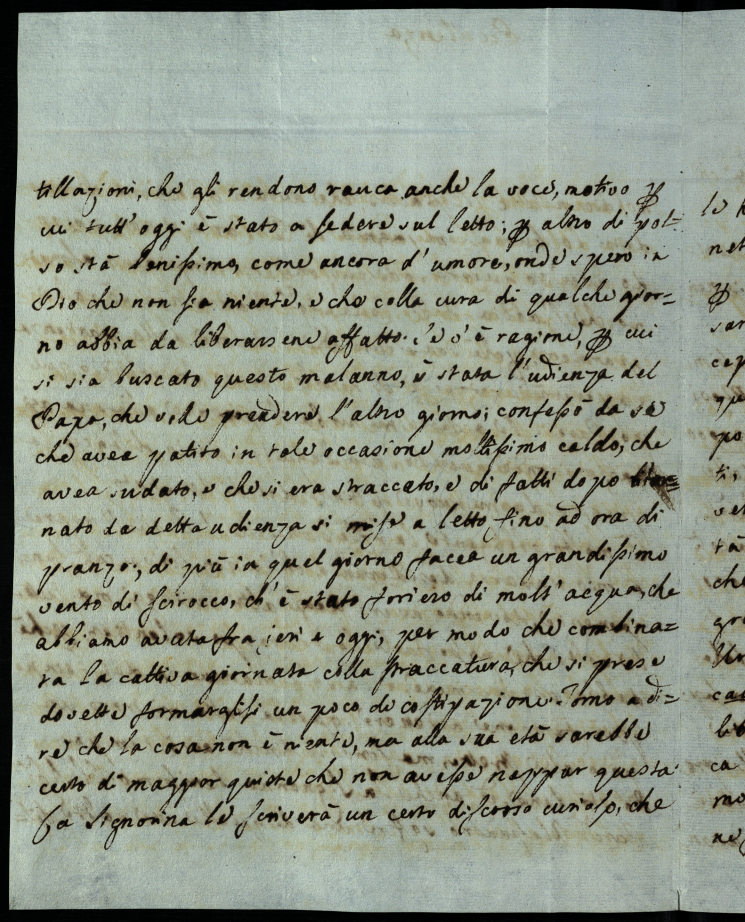 tillazioni, che gli rendono rauca anche la voce, motivo ꝑ
cui tutt'oggi è stato a sedere sul letto; ꝑ altro di pol=
so stà benissimo, come ancora d'umore, onde spero in
Dio che non sia niente, e che colla cura di qualche gior=
no abbia da liberarsene affatto. è ragione, ꝑ cui
si sia buscato questo malanno, è stata l'udienza del
Papa, che volle prendere l'altro giorno; confessò da sè
che avea patito in tale occasione moltissimo caldo, che
avea sudato, e che si era straccato, e di fatti dopo
nato da detta udienza si mise a letto fino ad ora di
pranzo; di più in quel giorno facea un grandissimo
vento di scirocco, ch'è stato foriero di molt'acqua, che
abbiamo avuta fra jeri e oggi, per modo che combina=
ta la cattiva giornata colla straccatura, che si prese
dovette formarglisi un poco di costipazione. Torno a di=
re che la cosa non è niente, ma alla sua età sarebbe
certo di maggior quiete che non avesse neppur questa.
La Signorina le scriverà un certo discorso curioso, che
le
net
ꝑ
sar
cap
que
po
ti,
ver
tà
che
gra
Ur
ca
lib
ca
mo
ne